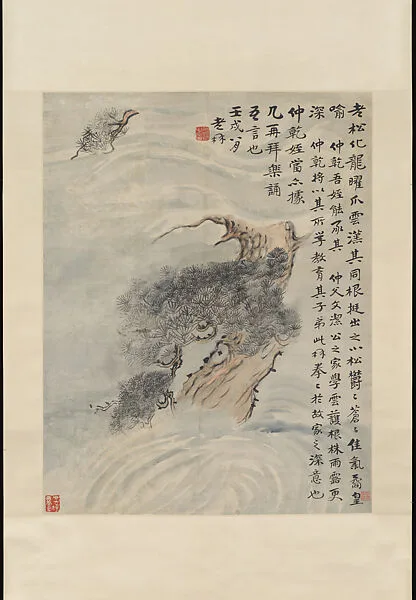 老松化龍曜爪雲漢其同根挺出之小松鬱〻蒼〻佳氣矞皇
喻 仲乾吾姪能承其 仲父文潔公之家學雲護根株雨露更
深 仲乾將以其所學教育其子弟此林拳〻於故家之深意也
仲乾姪當亦據
几再拜樂誦
吾言也
壬戌八月
老林